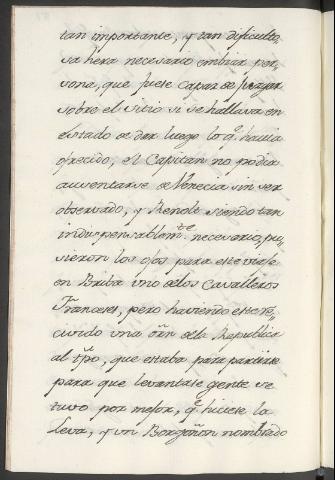 tan importante, y tan dificulto-
sa hera necesario embiar per-
sona, que fuese capaz de juzgar
sobre el sitio si se hallava en
estado de dar luego lo q.^e havia
ofrecido, el Capitan no podia
ausentarse de Venecia sin ser
observado, y Renole siendo tan
induspensablem.^te necesario, pu-
sieron los ojos para este viaje
en Briba uno de los Cavalleros
Franceses, pero haviendo este re-
civido una orn de la Republica
al tpo, que estaba para partirse
para que levantase gente se
tuvo por mejor, q.^e hiciese la
leva, y un Borgoñon nombrado